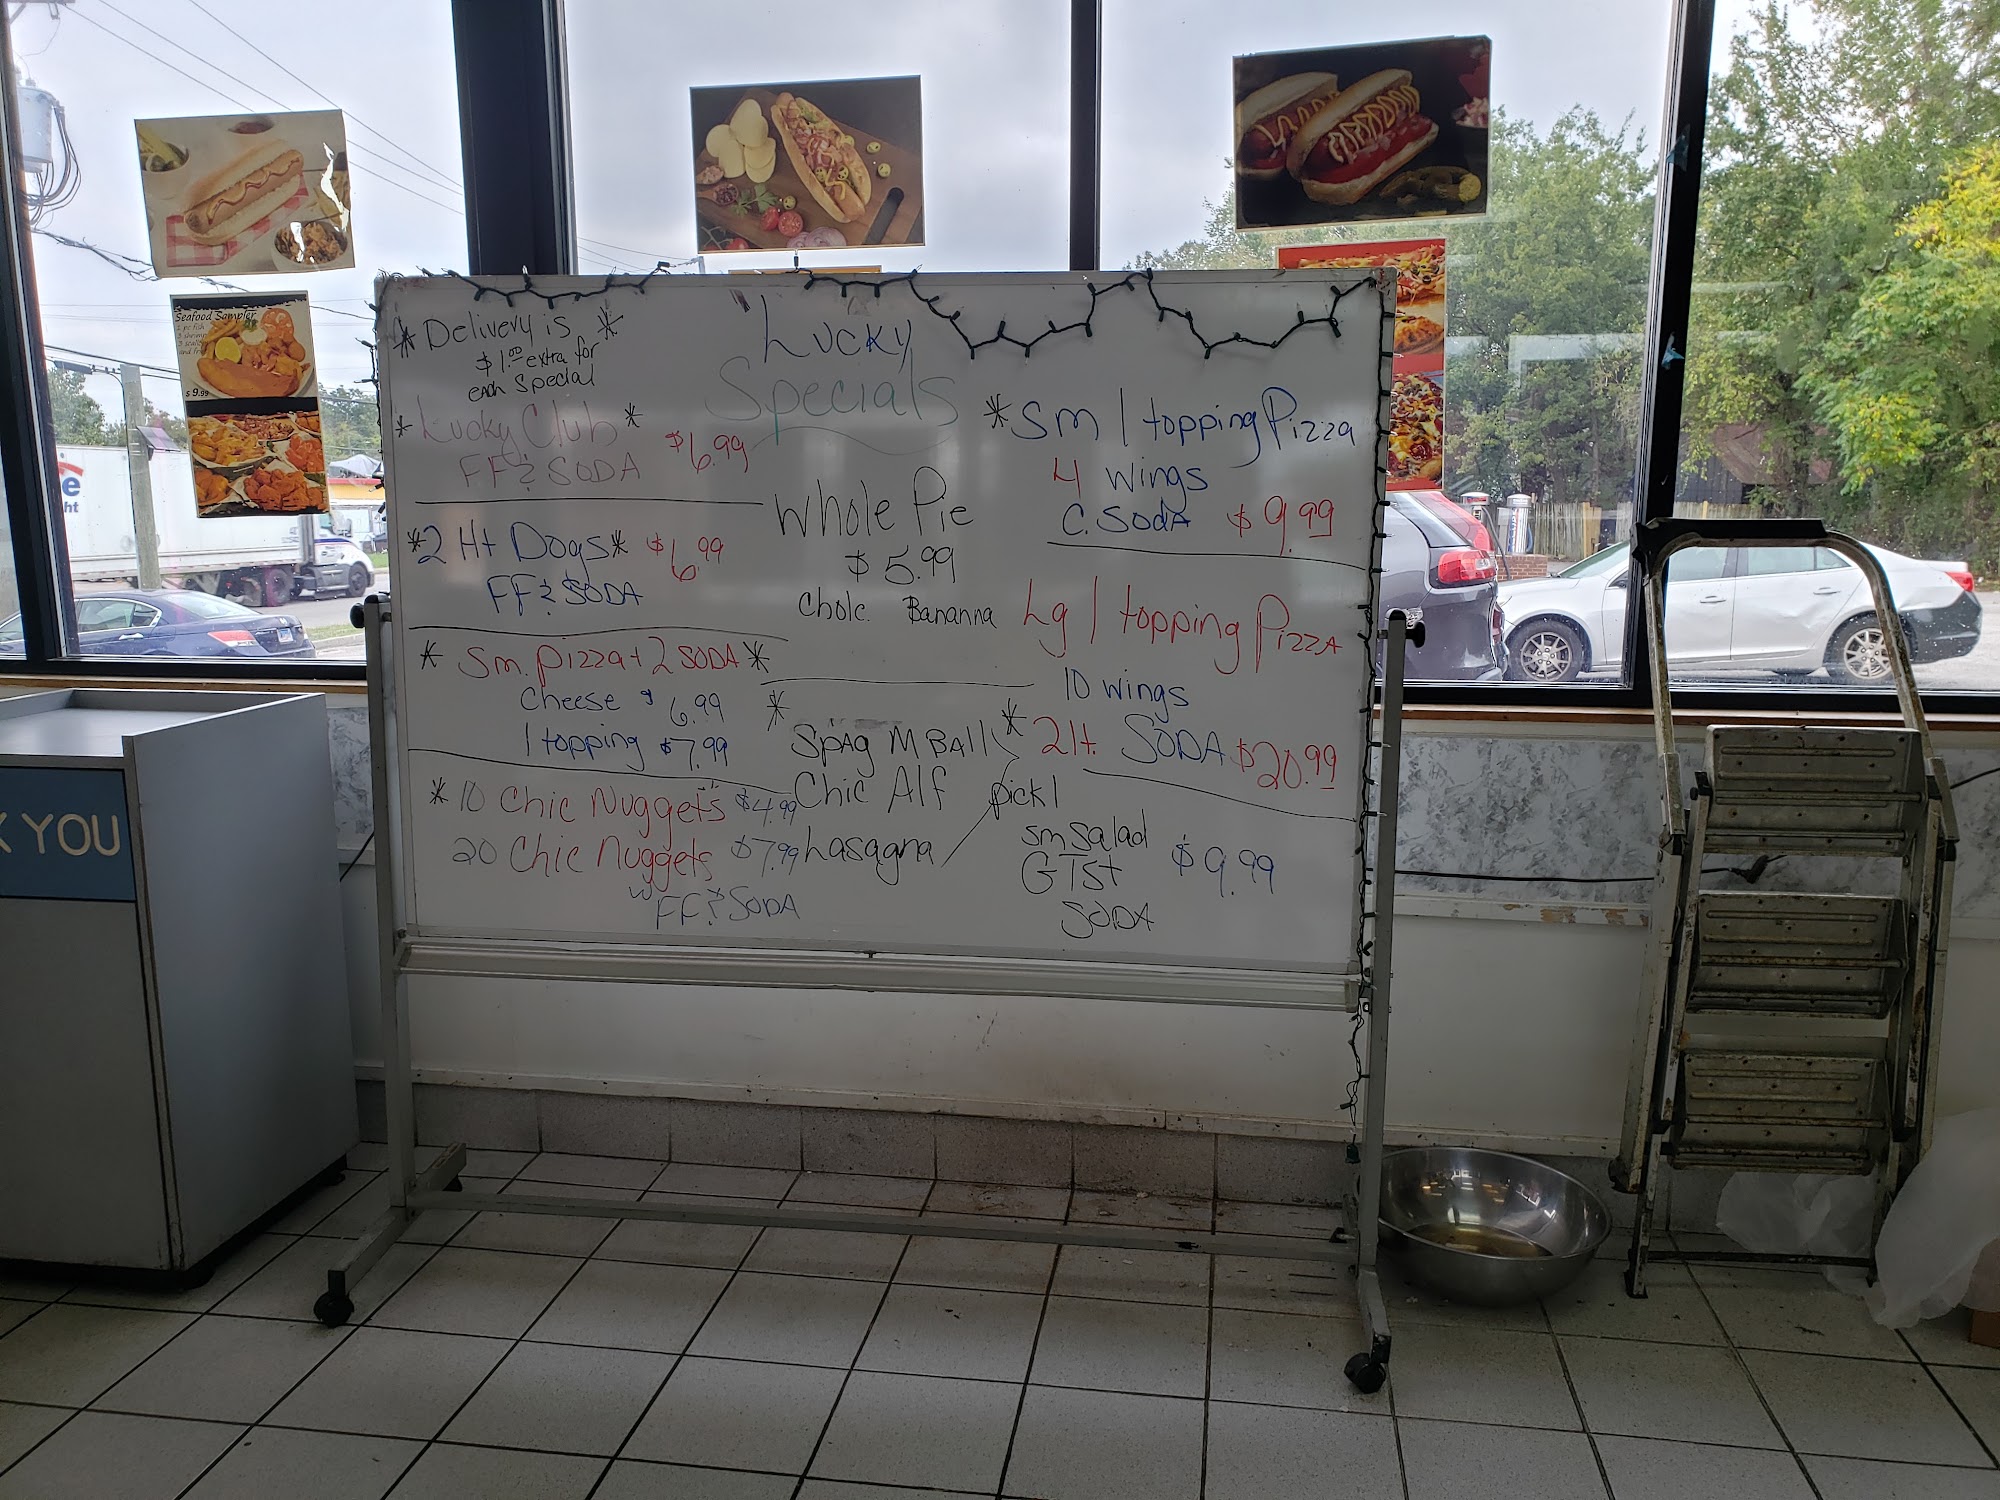 Seafood Sampler
2 pc fish
and fr
$9.99
e
ht
K YOU
* Delivery is *
$1.00 extra for
each Special
Lucky
Specials
* Lucky Club *
FF & SODA $6.99
* 2 Ht Dogs * $6.99
FF & SODA
* Sm. pizza + 2 SODA *
Cheese $6.99
1 topping $7.99
* 10 Chic Nuggets $4.99
20 Chic Nuggets $7.99
w/ FF & SODA
Whole Pie
$5.99
Cholc. Bananna
* Spag M Ball *
Chic Alf
Lasagna
pick 1
sm salad
G Tst
SODA
$9.99
* Sm 1 topping Pizza
4 wings
C. SodA $9.99
Lg 1 topping PizzA
10 wings
2 lt. SODA $20.99